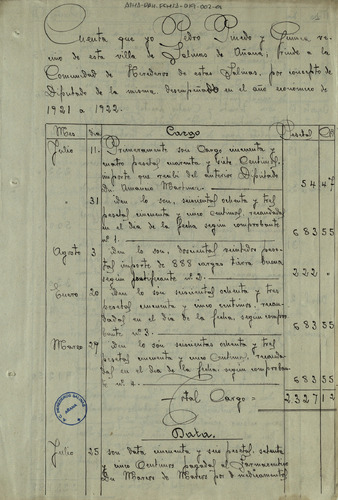 Cuenta que yo Pedro Pinedo y Guinea ve-
cino de esta villa de Salinas de Añana, rinde a la
Comunidad de Herederos de estas Salinas, por concepto de
Diputado de la misma desempeñado en el año económico de
1921 a 1922.
Mes Dia Cargo Pesetas Cts
Julio 11. Primeramente son Cargo cincuenta y
cuatro pesetas cuarenta y siete Centimos,
importe que recibí del anterior Diputado
Dn Amancio Martinez 54 47
" 31 Iden lo son, seiscientas ochenta y tres
pesetas cincuenta y cinco centimos, recaudadas
en el dia de la fecha segun comprobante
nº 1. 683 55
Agosto 3 Iden lo son, doscientas veintidos pese-
tas importe de 888 cargas tierra buena
según justificante nº 2. 222 "
Enero 20 Iden lo son seiscientas ochenta y tres
pesetas cincuenta y cinco centimos, recau-
dadas en el dia de la fecha, segun compro-
bante nº 3. 683 55
Marzo 29 Iden lo son seiscientas ochenta y tres
pesetas cincuenta y cinco Centimos, recaudadas
en el dia de la fecha, segun comproban-
te nº 4. 683 55
Total Cargo = 2.327 12
Data.
Julio 25 son data cincuenta y seis pesetas setenta
y cinco Centimos pagadas al Farmaceutico
Dn Marcos de Mateo por medicamentos